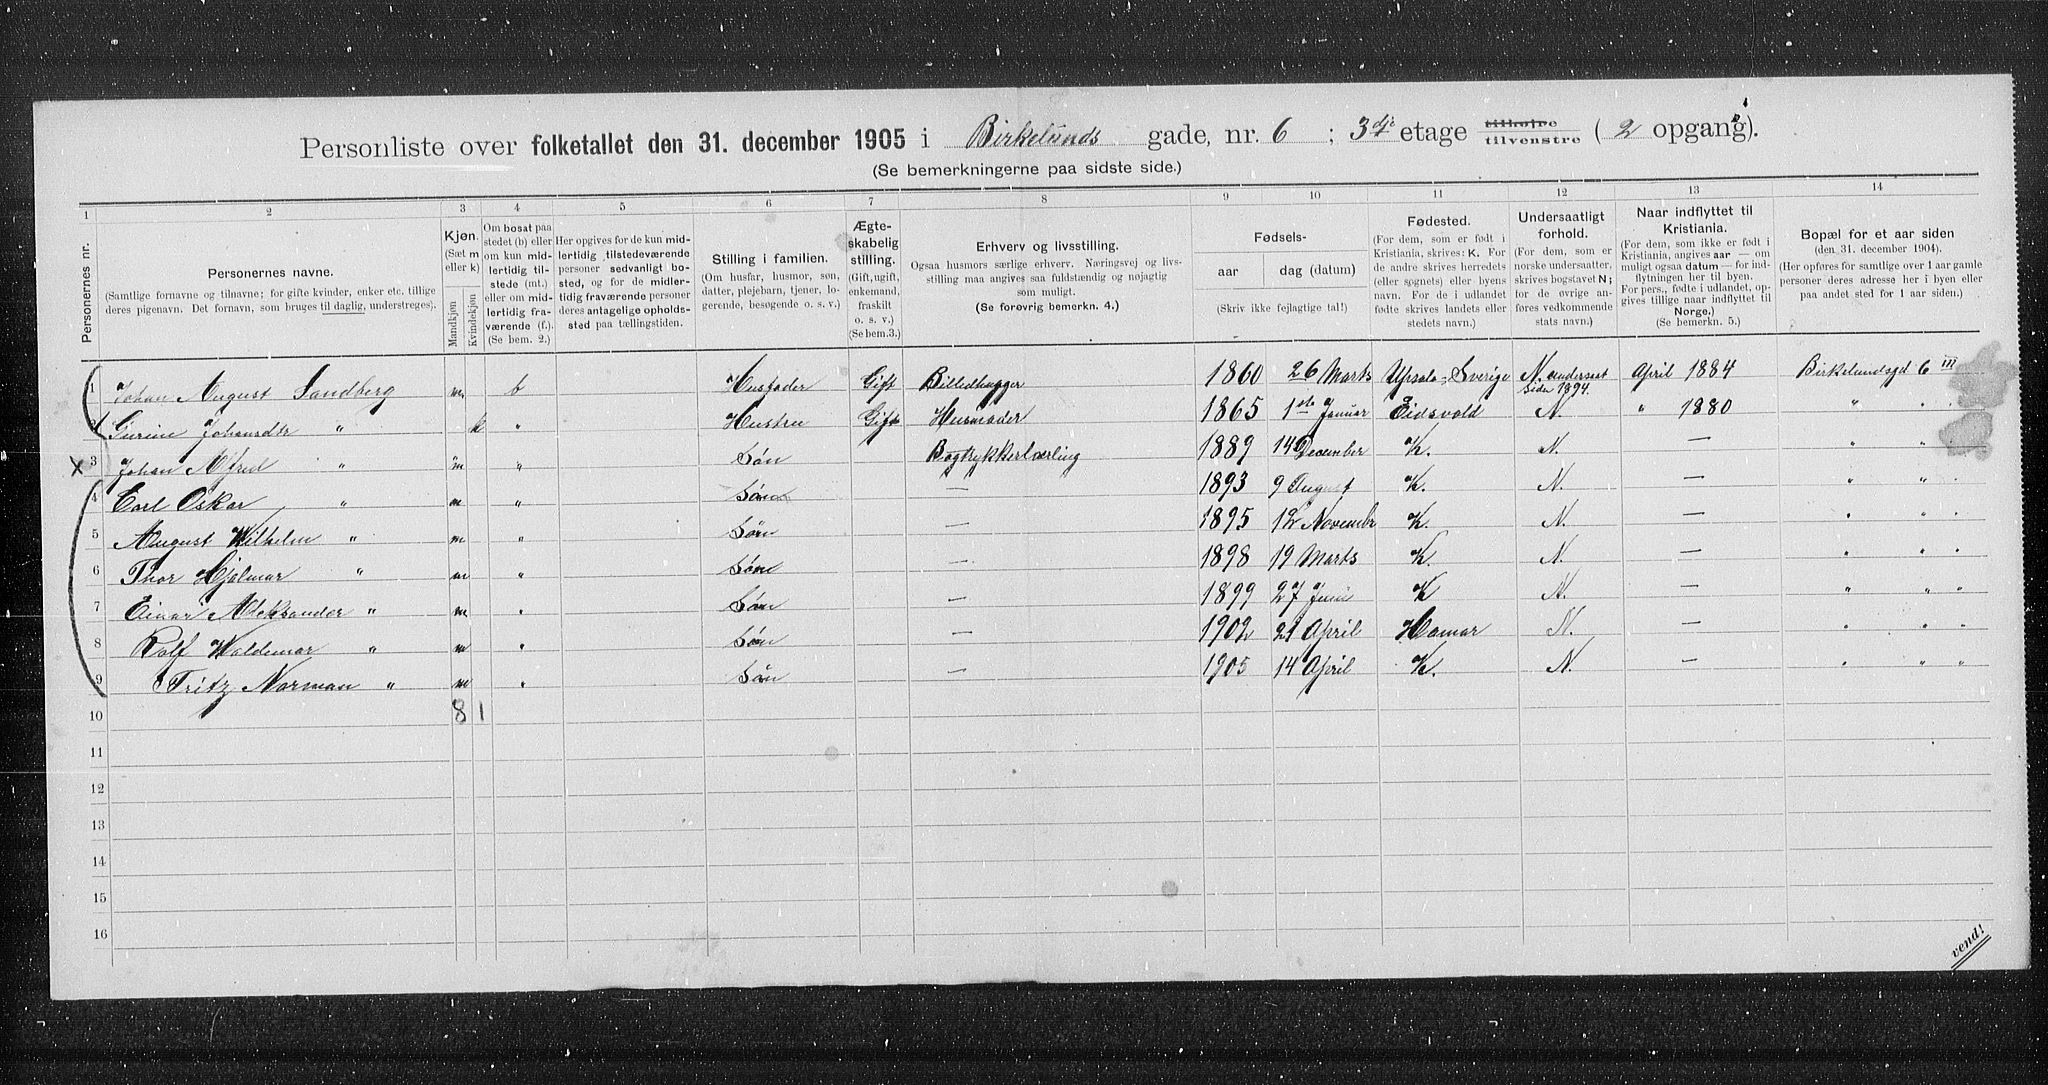 Personliste over folketallet den 31. december 1905 i Birkelunds gade, nr. 6 ; 3dje etage tilhøjre tilvenstre ( 2 opgang).
(Se bemerkningerne paa sidste side.)
1 2 3 4 5 6 7 8 9 10 11 12 13 14
Personernes nr.
Personernes navne.
(Samtlige fornavne og tilnavne; for gifte kvinder, enker etc. tillige deres pigenavn. Det fornavn, som bruges til daglig, understreges).
Kjøn.
(Sæt m eller k)
Mandkjøn
Kvindekjøn
Om bosat paa stedet (b) eller om kun midlertidig tilstede (mt.) eller om midlertidig fraværende (f.).
(Se bem. 2.)
Her opgives for de kun midlertidig tilstedeværende personer sedvanligt bosted, og for de midlertidig fraværende personer deres antagelige opholdssted paa tællingstiden.
Stilling i familien.
(Om husfar, husmor, søn, datter, plejebarn, tjener, logerende, besøgende o. s. v.)
Ægteskabelig stilling.
(Gift, ugift, enkemand, fraskilt o. s. v.)
(Se bem.3.)
Erhverv og livsstilling.
Ogsaa husmors særlige erhverv. Næringsvej og livsstilling maa angives saa fuldstændig og nøjagtig som muligt.
(Se forøvrig bemerkn. 4.)
Fødsels-
aar
dag (datum)
(Skriv ikke fejlagtige tal!)
Fødested.
(For dem, som er født i Kristiania, skrives: K. For de andre skrives herredets (eller sognets) eller byens navn. For de i udlandet fødte skrives landets eller stedets navn.)
Undersaatligt forhold.
(For dem, som er norske undersaatter, skrives bogstavet N; for de øvrige anføres vedkommende stats navn.)
Naar indflyttet til Kristiania.
(For dem, som ikke er født i Kristiania, angives aar — om muligt ogsaa datum — for indflytningen her til byen. For pers., fødte i udlandet, opgives tillige naar indflyttet til Norge.)
(Se bemerkn. 5.)
Bopæl for et aar siden
(den 31. december 1904).
(Her opføres for samtlige over 1 aar gamle personer deres adresse her i byen eller paa andet sted for 1 aar siden.)
1 Johan August Sandberg m. b Husfader Gift Billedhugger 1860 26 Marts Upsala = Sverige N. undersaat siden 1894. April 1884 Birkelundsgd 6 III
2 Gurine Johansdtr " k " Hustru Gift Husmoder 1865 1ste Januar Eidsvold N. " 1880 " " "
x 3 Johan Alfred " m " Søn Bogtrykkerlærling 1889 14 December K. N. — " " "
4 Carl Oskar " m " Søn — 1893 9 August K. N. — " " "
5 August Wilhelm " m " Søn — 1895 12 Novembr K. N. — " " "
6 Thor Hjalmar " m " Søn — 1898 19 Marts K. N. — " " "
7 Einar Aleksander " m " Søn — 1899 27 Juni K N. — " " "
8 Rolf Waldemar " m " Søn — 1902 21 April Hamar N. — " " "
9 Fritz Norman " m " Søn — 1905 14 April K. N. — " " "
10 8 1
11
12
13
14
15
16
vend!